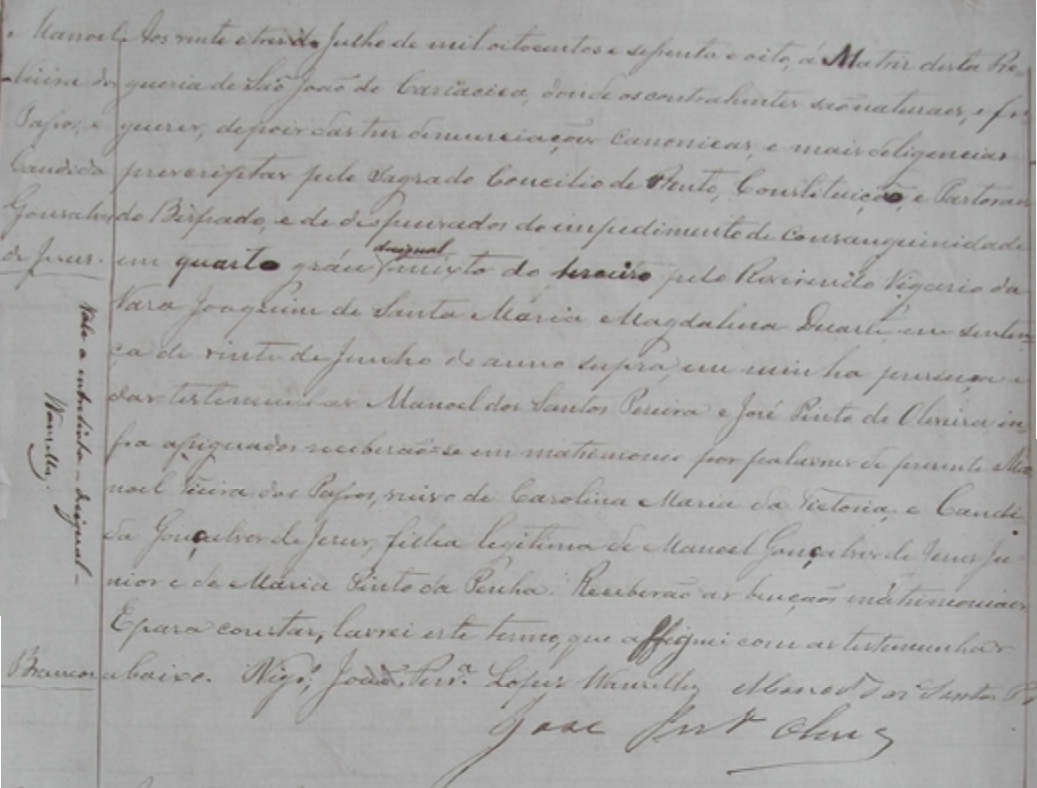 Manoel
Vieira dos
Passos, e
Candida
Gonsalves
de Jesus.
Vale a entrelinha - desigual -
Wanzeller.
Brancos
Aos vinte e tres de Julho de mil oitocentos e setenta e oito, á Matriz desta Fre-
guezia de São João de Cariacica, donde os contrahentes são naturaes, e fre-
guezes, depois das tres denunciações canonicas, e mais deligencias
prescriptas pelo Sagrado Concilio de Trento, Constituição, e Pastoraes
do Bispado, e de dispensados do impedimento de consanguinidade
desigual
em quarto gráu mixto do terceiro pelo Reverendo Vigario da
Vara Joaquim de Santa Maria Magdalena Duarte, em senten-
ça de vinte de Junho do anno supra, em minha presença e
das testemunhas Manoel dos Santos Pereira e José Pinto de Oliveira, in-
fra assignados receberão-se em matrimonio por palavras de presente Ma-
noel Vieira dos Passos, viuvo de Carolina Maria da Victoria, e Candi-
da Gonçalves de Jesus, filha legitima de Manoel Gonçalves de Jesus Ju-
nior e de Maria Pinto da Penha. Receberão as bençãos matrimoniaes.
E para constar, lavrei este termo, que assignei com as testemunhas
abaixo. Vigr.º João Perr.ª Lopes Wanzeller Manoel dos Santos Pr
Jose Pint Oliv